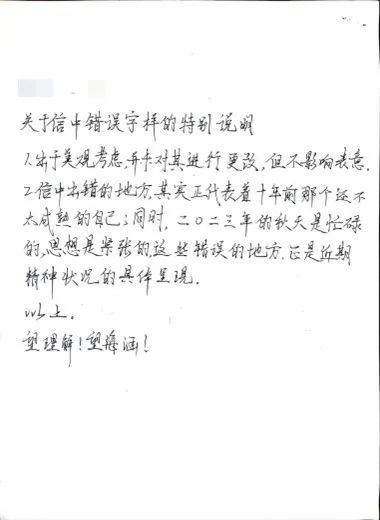 关于信中错误字样的特别说明
1.出于美观考虑,并未对其进行更改,但不影响表意.
2.信中出错的地方,其实正代表着十年前那个还不
太成熟的自己;同时,二〇二三年的秋天是忙碌
的,思想是紧张的,这些错误的地方,正是近期
精神状况的具体呈现.
以上.
望理解!望海涵!